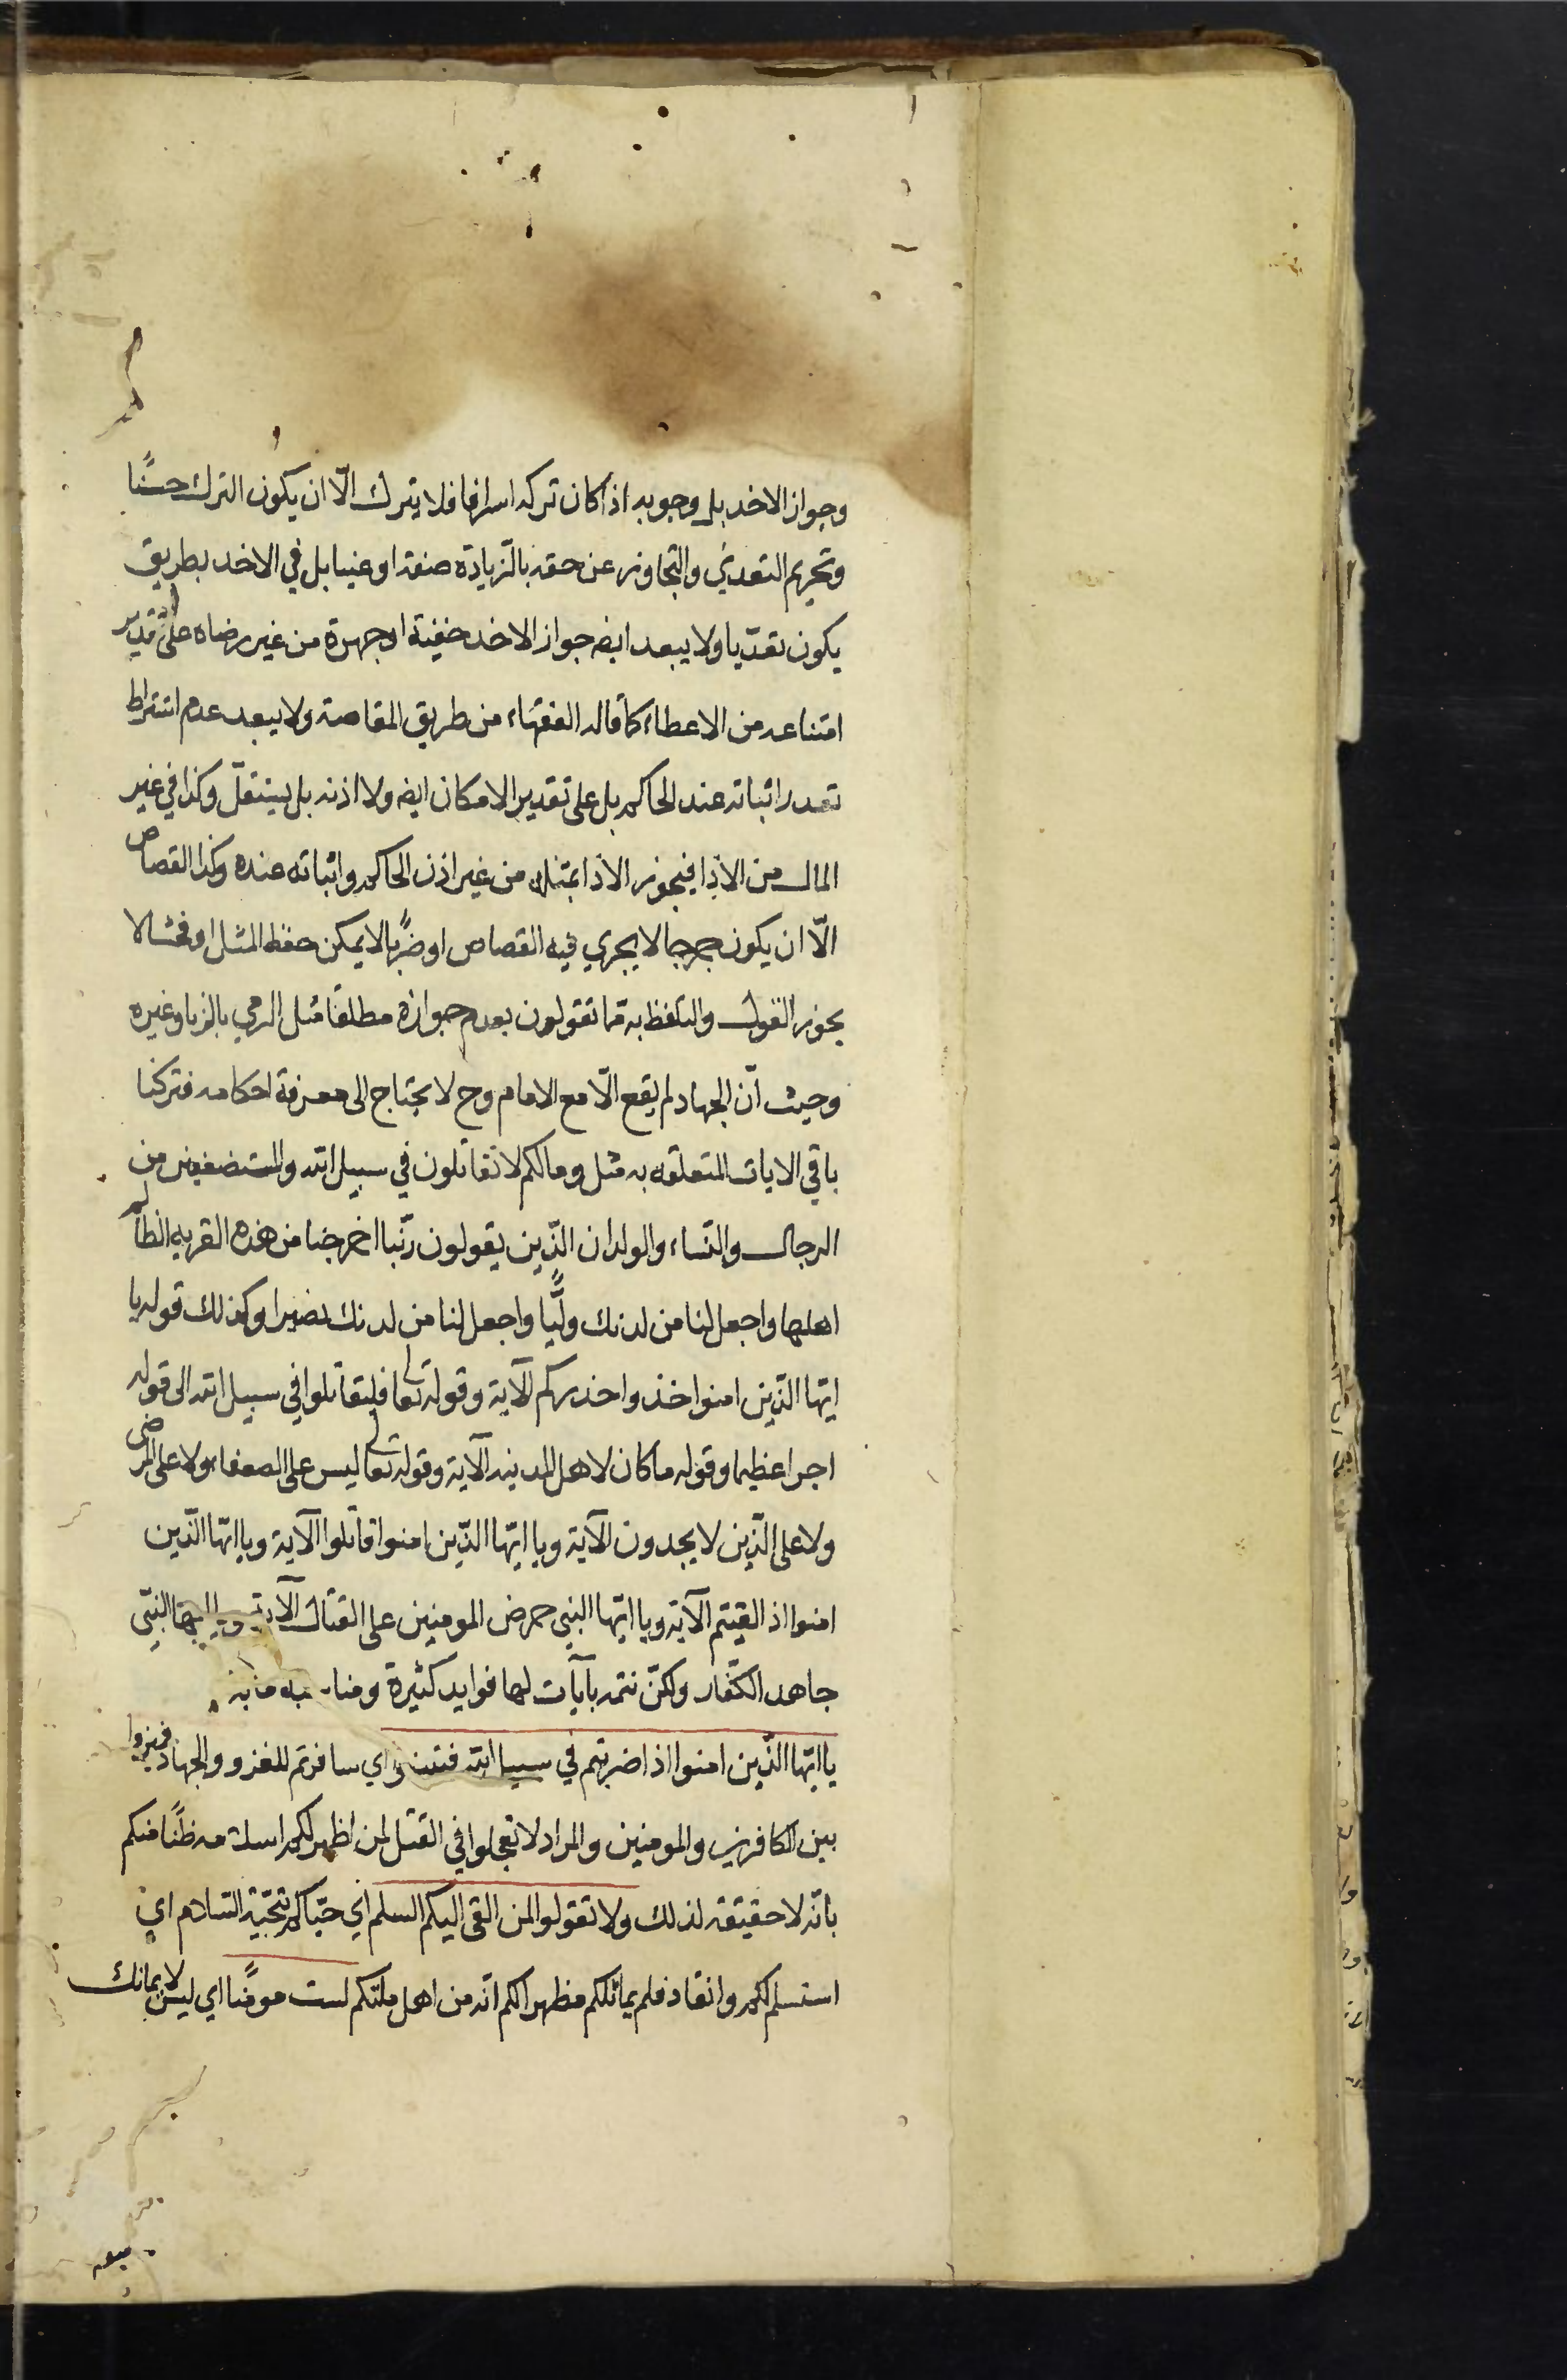 وجواز الاخذ بل وجوبه اذا كان تركه اسرافا فلا يترك الّا ان يكون الترك حسنًا
وتحريم التعدي والتجاوز عن حقه بالزيادة صنفة او عينا بل في الاخذ بطريق
يكون تعدّيا ولا يبعد ايضه جواز الاخذ خفية او جهرة من غير رضاه على تقدير
امتناعه من الاعطاء كما قاله الفقهاء من طريق المقاصة ولا يبعد عدم اشتراط
تعذر اثباته عند الحاكم بل على تقدير الامكان ايضه ولا اذنه بل يستقلّ وكذا في غير
المال من الاذا فيجوز الاذا بمثله من غير اذن الحاكم واثباته عنده وكذا القصاص
الّا ان يكون جرحا لا يجري فيه القصاص او ضربًا لا يمكن حفظ المثل او فحشا لا
يجوز القول والتلفظ به مما تقولون بعدم جوازه مطلقًا مثل الرمي بالزنا وغيره
وحيث انّ الجهاد لم يقع الّا مع الامام وح لا يحتاج الى معرفة احكامه فتركنا
باقي الايات المتعلقه به مثل ومالكم لا تقاتلون في سبيل الله والمستضعفين من
الرجال والنساء والولدان الذّين يقولون ربّنا اخرجنا من هذه القريه الظالم
اهلها واجعل لنا من لدنك وليًّا واجعل لنا من لدنك نصيرا وكذلك قوله يا
ايّها الذّين امنوا خذوا حذركم الآية وقوله تعالى فليقاتلوا في سبيل الله الى قوله
اجرا عظيما وقوله ما كان لاهل المدينه الآية وقوله تعالى ليس على الضعفاء ولا على المرضى
ولا على الذّين لا يجدون الآية ويا ايّها الذّين امنوا قاتلوا الآية ويا ايّها الذّين
امنوا اذ القيتم الآية ويا ايّها النبي حرض المومنين على القتال الآية ويا ايها النبّي
جاهد الكفّار ولكنّ نتمه بآيات لها فوايد كثيرة
يا ايّها الذّين امنوا اذا ضربتم في سبيل الله فتبينوا اي سافرتم للغزو والجهاد فميزوا
بين الكافرين والمومنين والمراد لا تعجلوا في القتل لمن اظهر لكم اسلامه ظنًا منكم
بانّه لا حقيقة لذلك ولا تقولوا لمن القى اليكم السلم اي حيّاكم بتحيّة السّلام اي
استسلم لكم وانقاد فلم يقاتلكم مظهرا لكم انّه من اهل ملتكم لست مومنًا اي ليس لايمانك